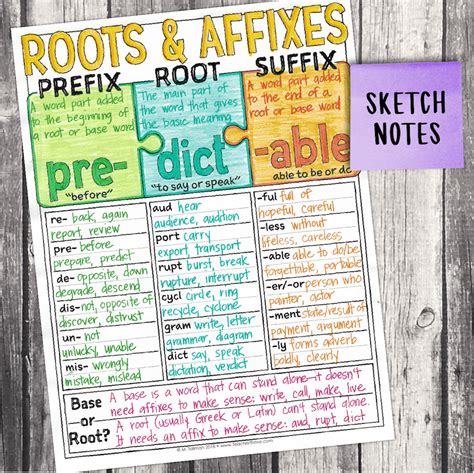 ROOTS & AFFIXES
PREFIX ROOT SUFFIX
A word part added
to the beginning of
a root or base word
pre-
"before"
The main part of
the word that gives
the basic meaning
dict
"to say or speak"
A word part added
to the end of a
root or base word
-able
able to be or do
SKETCH
NOTES
re- back, again
report, review
pre- before
prepare, predict
de- opposite, down
degrade, descend
dis- not, opposite of
discover, distrust
un- not
unlucky, unable
mis- wrongly
mistake, mislead
aud hear
audience, audition
port carry
export, transport
rupt burst, break
rupture, interrupt
cycl circle, ring
recycle, cyclone
gram write, letter
grammar, diagram
dict say, speak
dictation, verdict
-ful full of
hopeful, careful
-less without
lifeless, careless
-able able to do/be
forgettable, portable
-er/-or person who
painter, actor
-ment state/result of
payment, argument
-ly forms adverb
boldly, clearly
Base
-or-
Root?
A base is a word that can stand alone-it doesn't
need affixes to make sense: write, call, make, live
A root (usually Greek or Latin) can't stand alone.
It needs an affix to make sense: aud, rupt, dict